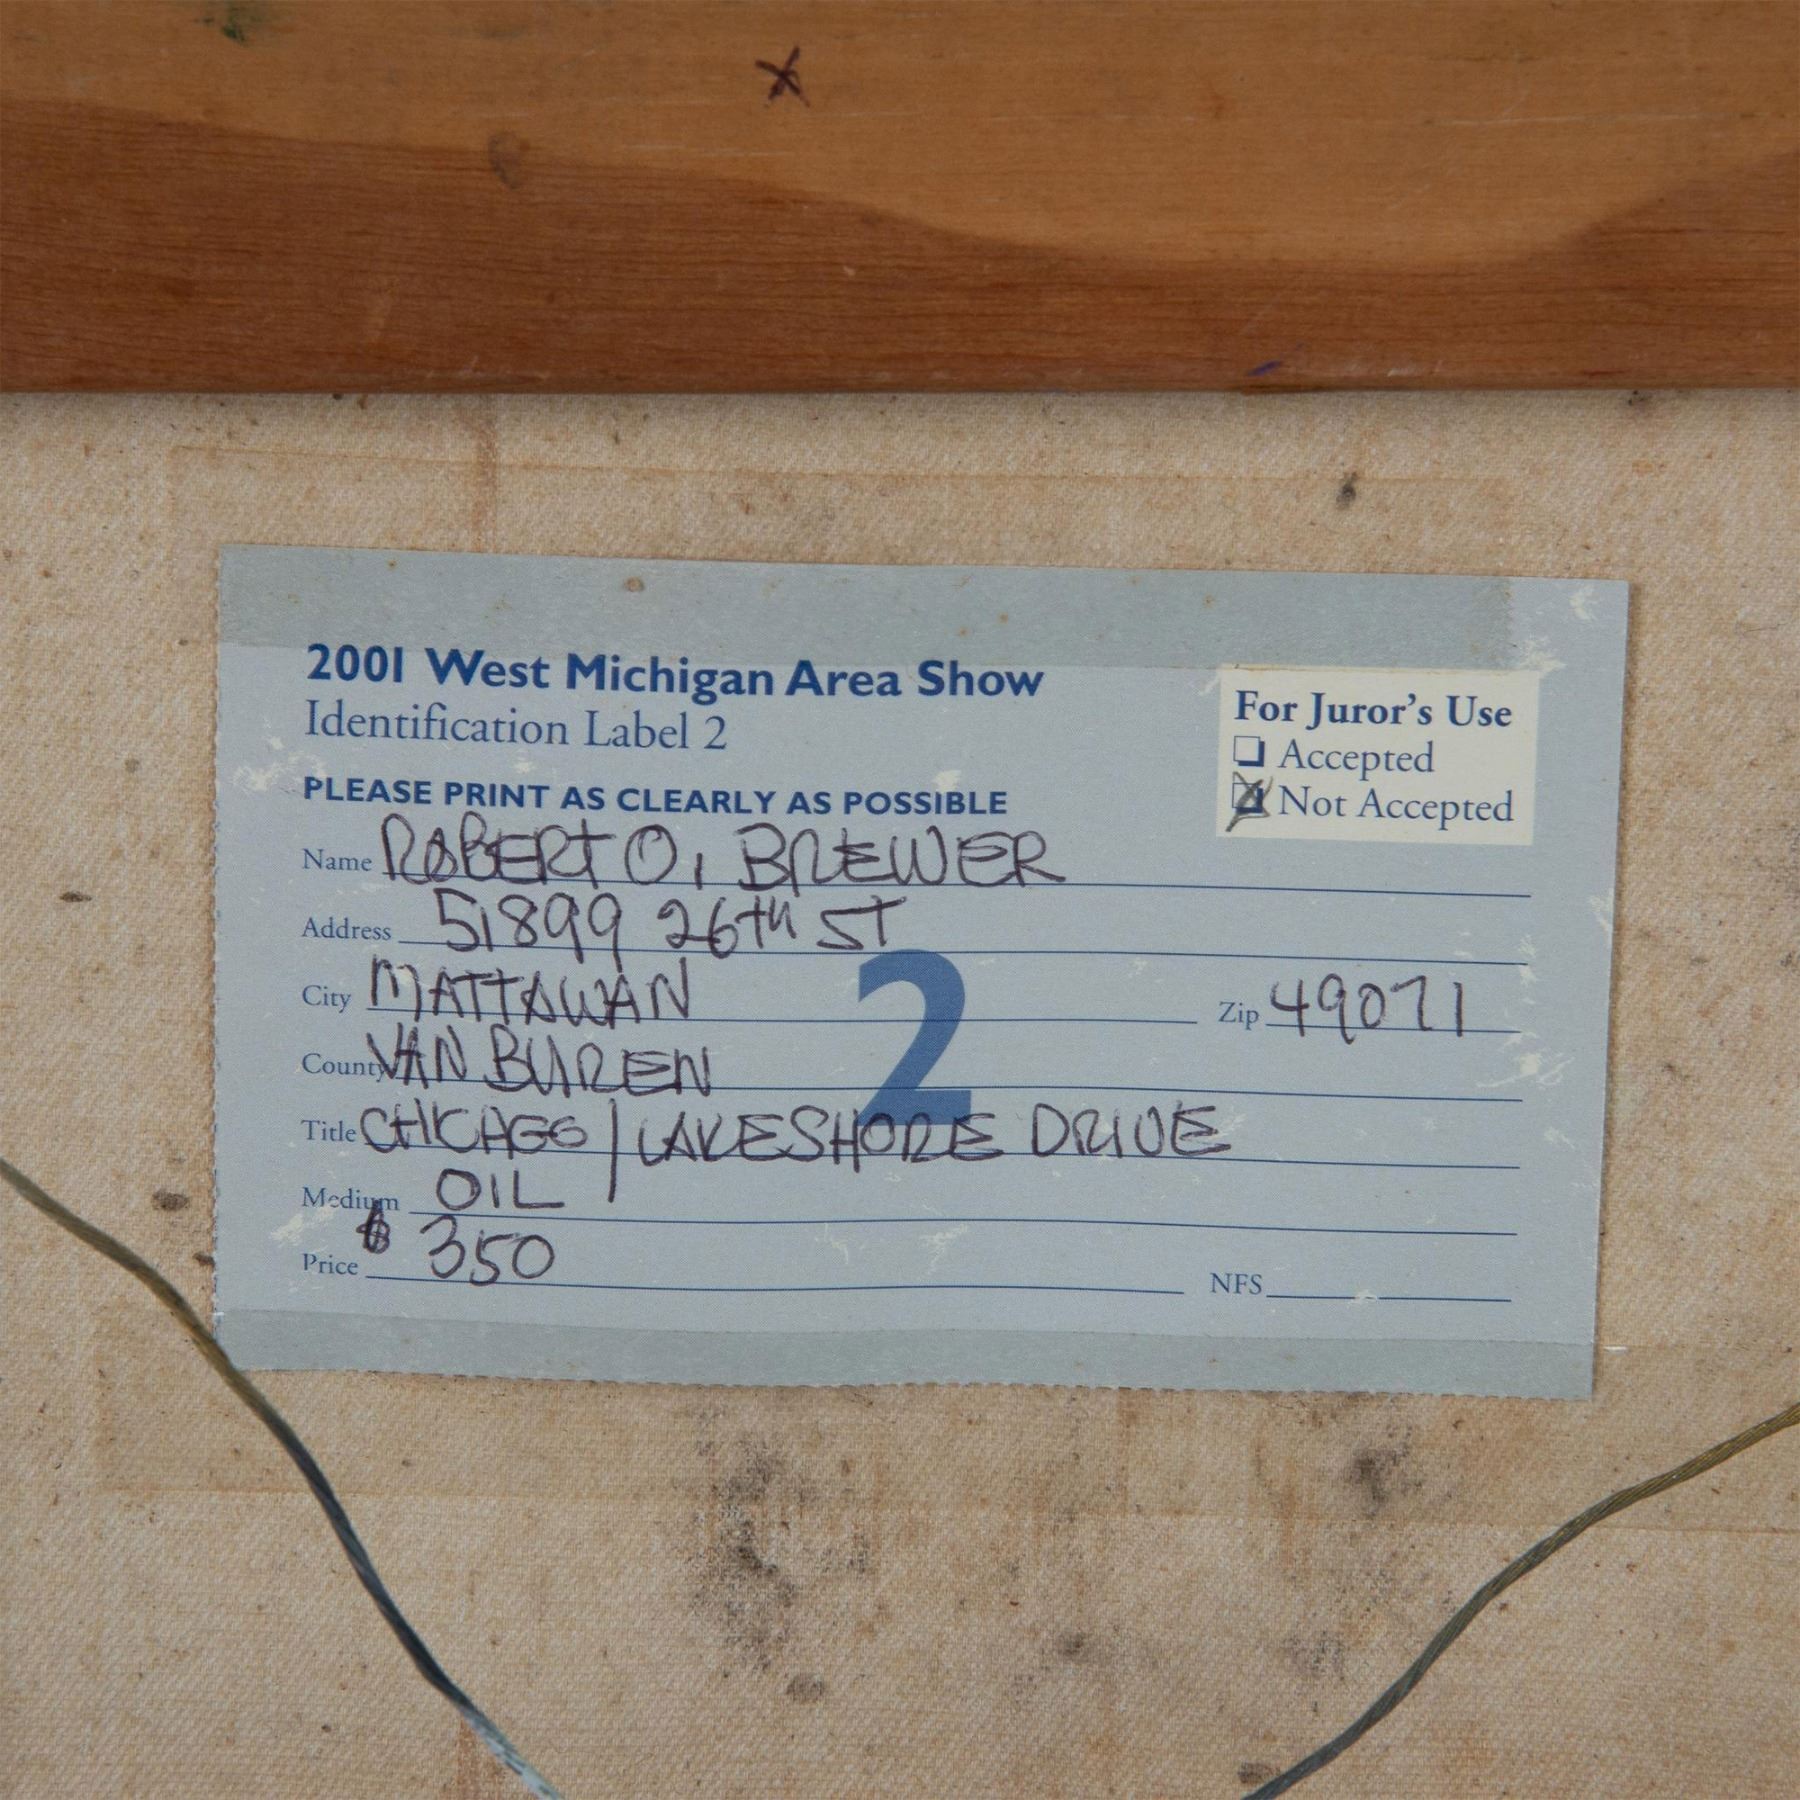 2001 West Michigan Area Show
Identification Label 2
For Juror's Use
❏ Accepted
❏ Not Accepted
PLEASE PRINT AS CLEARLY AS POSSIBLE
Name ROBERT O. BREWER
Address 51899 26TH ST
City MATTAWAN Zip 49071
County VAN BUREN
2
Title CHICAGO / LAKESHORE DRIVE
Medium OIL
Price $ 350 NFS